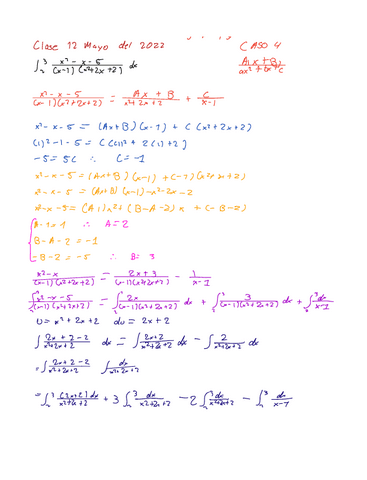 Clase 12 Mayo del 2022
CASO 4
∫₂³ x²-x-5 / (x-1)(x²+2x+2) dx
Ax+B / ax²+bx+c
x²-x-5 / (x-1)(x²+2x+2) = Ax+B / x²+2x+2 + C / x-1
x²-x-5 = (Ax+B)(x-1) + C(x²+2x+2)
(1)²-1-5 = C((1)²+2(1)+2)
-5=5C ∴ C=-1
x²-x-5 = (Ax+B)(x-1)+(-1)(x²+2x+2)
x²-x-5 = (Ax+B)(x-1)-x²-2x-2
x²-x-5 = (A-1)x²+(B-A-2)x+(-B-2)
A-1=1 ∴ A=2
B-A-2=-1
-B-2=-5 ∴ B=3
x²-x / (x-1)(x²+2x+2) = 2x+3 / (x-1)(x²+2x+2) - 1 / x-1
∫₂³ x²-x-5 / (x-1)(x²+2x+2) = ∫₂³ 2x / (x-1)(x²+2x+2) dx + ∫₂³ 3 / (x-1)(x²+2x+2) dx + ∫₂³ dx / x-1
U=x²+2x+2 du=2x+2
∫ 2x+2-2 / x²+2x+2 dx = ∫ 2x+2 / x²+2x+2 dx - ∫ 2 / x²+2x+2
=∫ 2x+2-2 / x²+2x+2 ∫ dx / x²+2x+2
=∫₂³ (2x+2)dx / x²+2x+2 + 3∫₂³ dx / x²+2x+2 - 2∫₂³ dx / x²+2x+2 - ∫₂³ dx / x-1